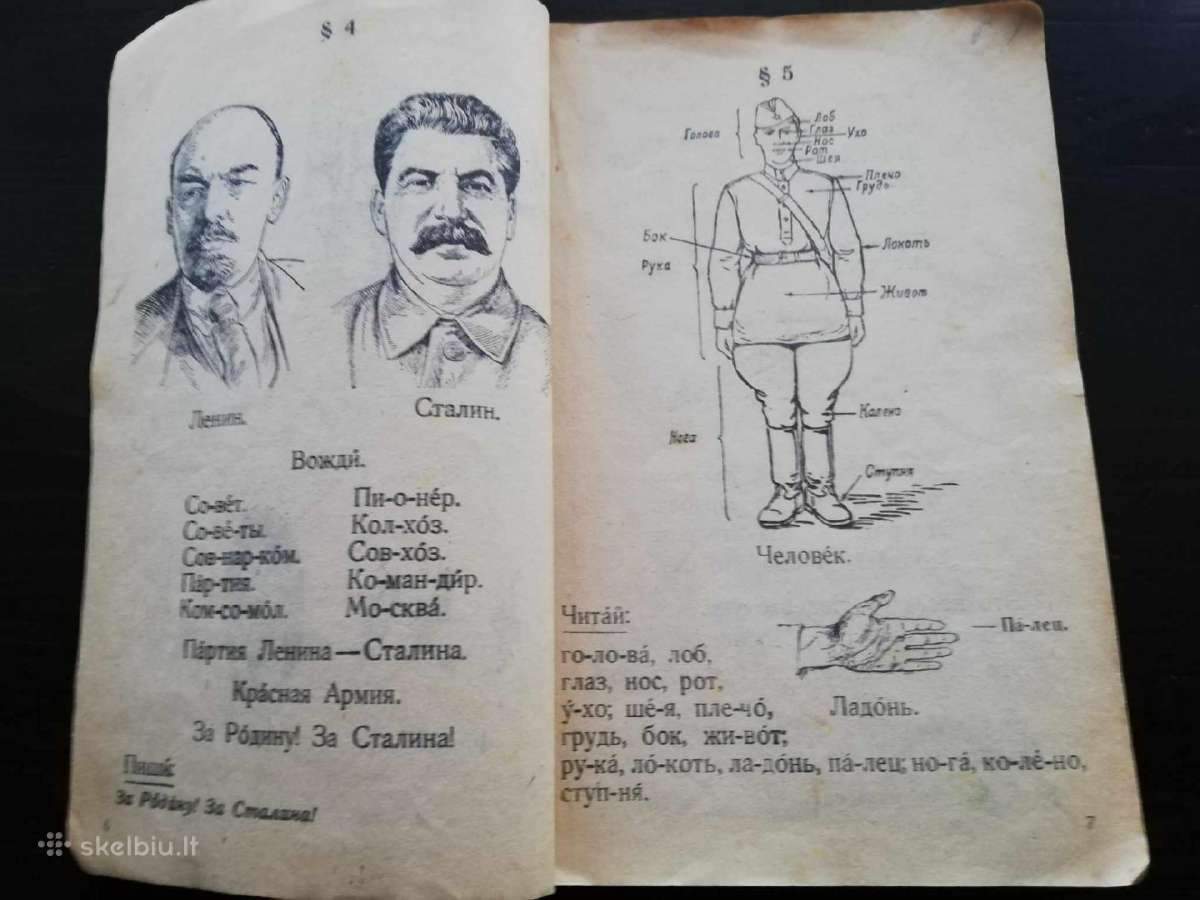 § 4
Ленин.
Сталин.
Вожди́.
Со-ве́т.
Со-ве́-ты.
Сов-нар-ко́м.
Па́р-тия.
Ком-со-мо́л.
Пи-о-не́р.
Кол-хо́з.
Сов-хо́з.
Ко-ман-ди́р.
Мо-сква́.
Па́ртия Ленина—Сталина.
Кра́сная Армия.
За Ро́дину! За Сталина!
Пиши́:
За Ро́дину! За Сталина!
6
§ 5
Голова
Лоб
Глаз
Ухо
Нос
Рот
Шея
Плечо
Грудь
Бок
Рука
Локоть
Живот
Колено
Нога
Ступня
Челове́к.
Чита́й:
го-ло-ва́, лоб,
глаз, нос, рот,
у́-хо; ше́-я, пле-чо́,
грудь, бок, жи-во́т;
ру-ка́, ло́-коть, ла-до́нь, па́-лец; но-га́, ко-ле́-но,
ступ-ня́.
Па́-лец.
Ладо́нь.
7
skelbiu.lt